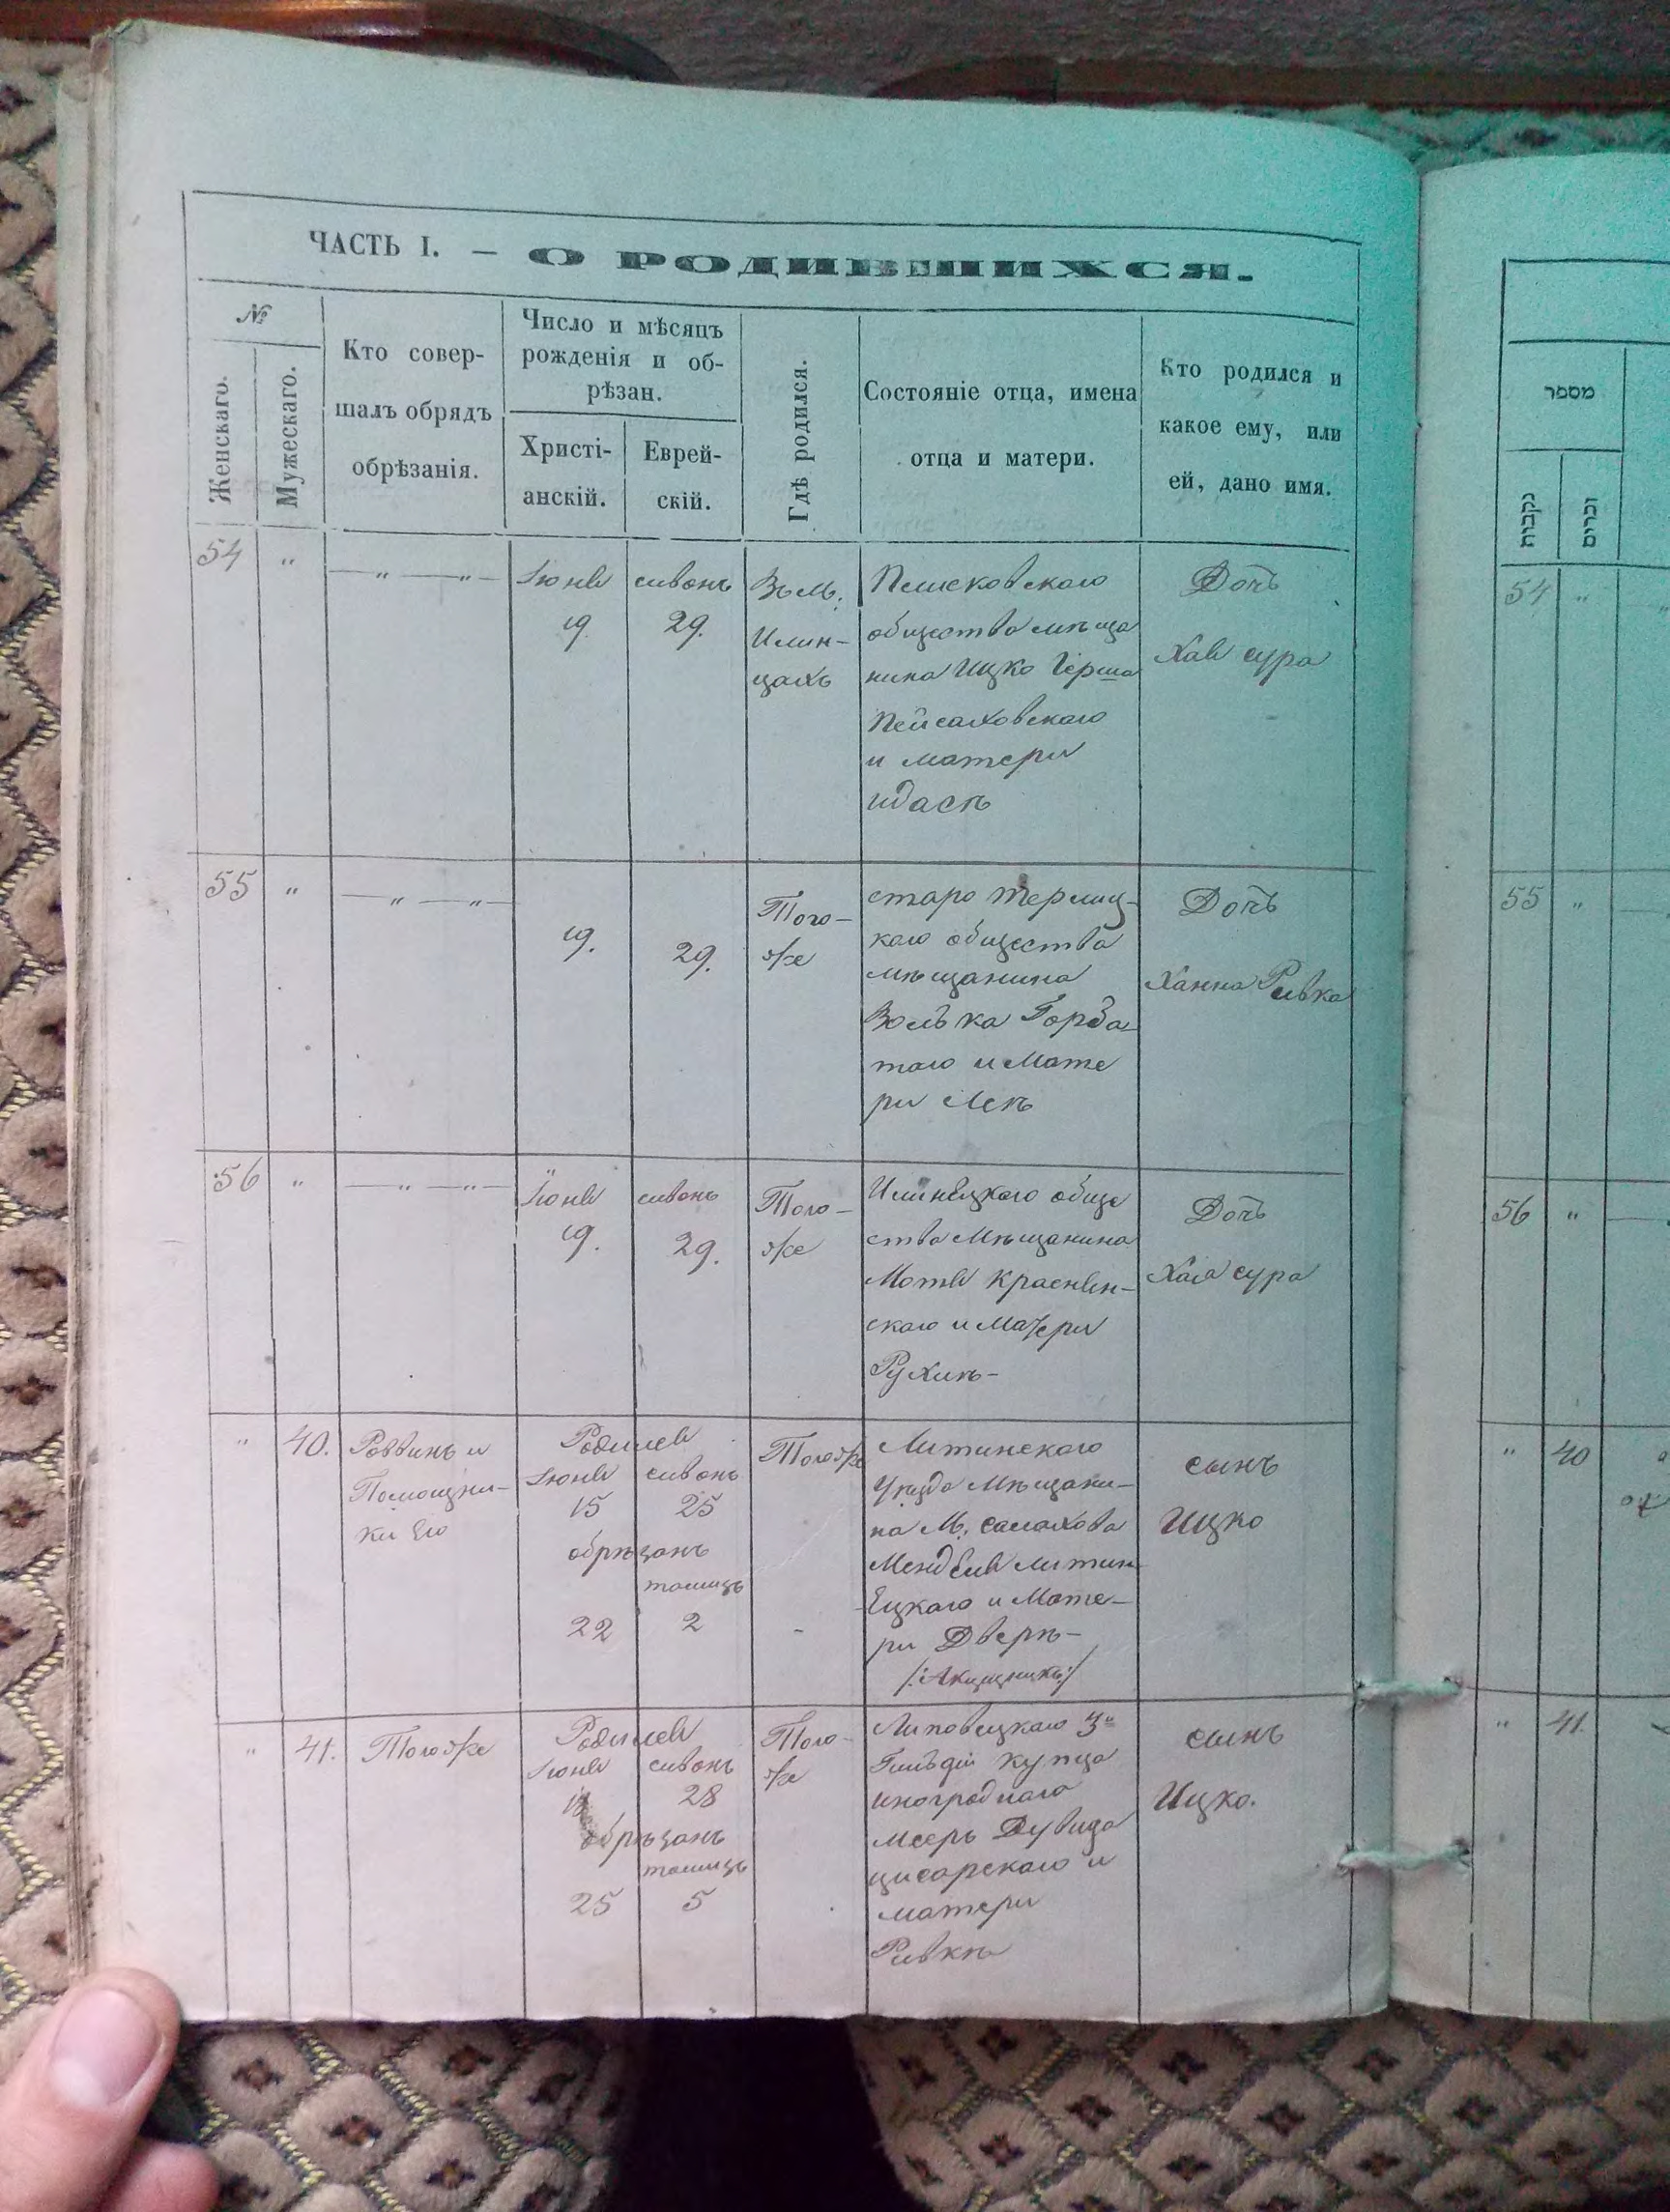 ЧАСТЬ I. — О РОДИВШИХСЯ.
№
Женскаго.
Мужескаго.
Кто совер-
шалъ обрядъ
обрѣзанія.
Число и мѣсяцъ
рожденія и об-
рѣзан.
Христі-
анскій.
Еврей-
скій.
Гдѣ родился.
Состояніе отца, имена
отца и матери.
Кто родился и
какое ему, или
ей, дано имя.
54 " — " — " —
Іюня
19
сивонъ
29.
Въ м.
Илин-
цахъ
общества мѣща
нина Ицко Герша
Пейсаховскаго
и матери
Идасѣ
Дочь
Хая сура
55 " — " — " —
19.
29.
Того-
же
старо
каго общества
мѣщанина
Волька Горба-
таго и Мате
ри Леѣ
Дочь
Ханна Ривка
56 " — " — " —
Іюня
19.
сивонъ
29.
Того-
же
Илинецкаго обще
ства Мѣщанина
Мотя Краснян-
скаго и Матери
Рухлѣ-
Дочь
Хая сура
" 40.
Раввинъ и
Помощни-
ки Его
Родился
Іюня сивонъ
15 25
обрѣзанъ
тамузъ
22 2
Тогоже
Литинскаго
Уѣзда Мѣщани-
на М.
Менделя Литин
Ецкаго и Мате-
ри Двери-
сынъ
Ицко
" 41.
Тогоже
Родился
Іюня сивонъ
28
обрѣзанъ
тамузъ
25 5
Того-
же
Липовецкаго 3й
Гильдіи купца
иногроднаго
Меерь Дувида
цисарскаго и
матери
Ривки
сынъ
Ицко.
מספר
נקבות
זכרים
54 "
55 "
56 "
" 40
" 41.